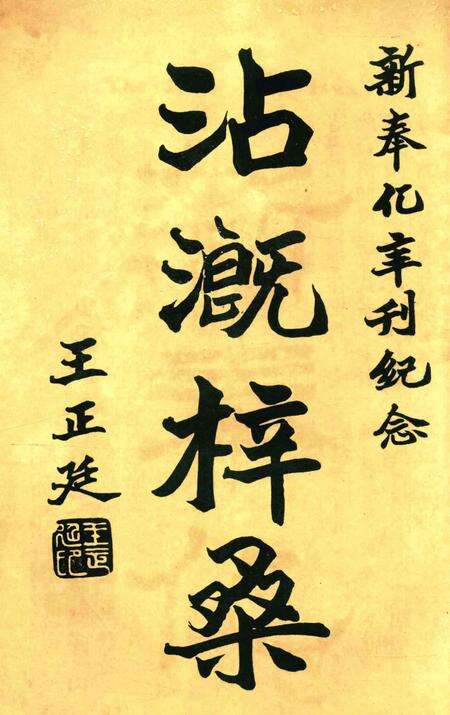 新奉化年刊紀念
沾溉梓桑
王正廷
王正廷印